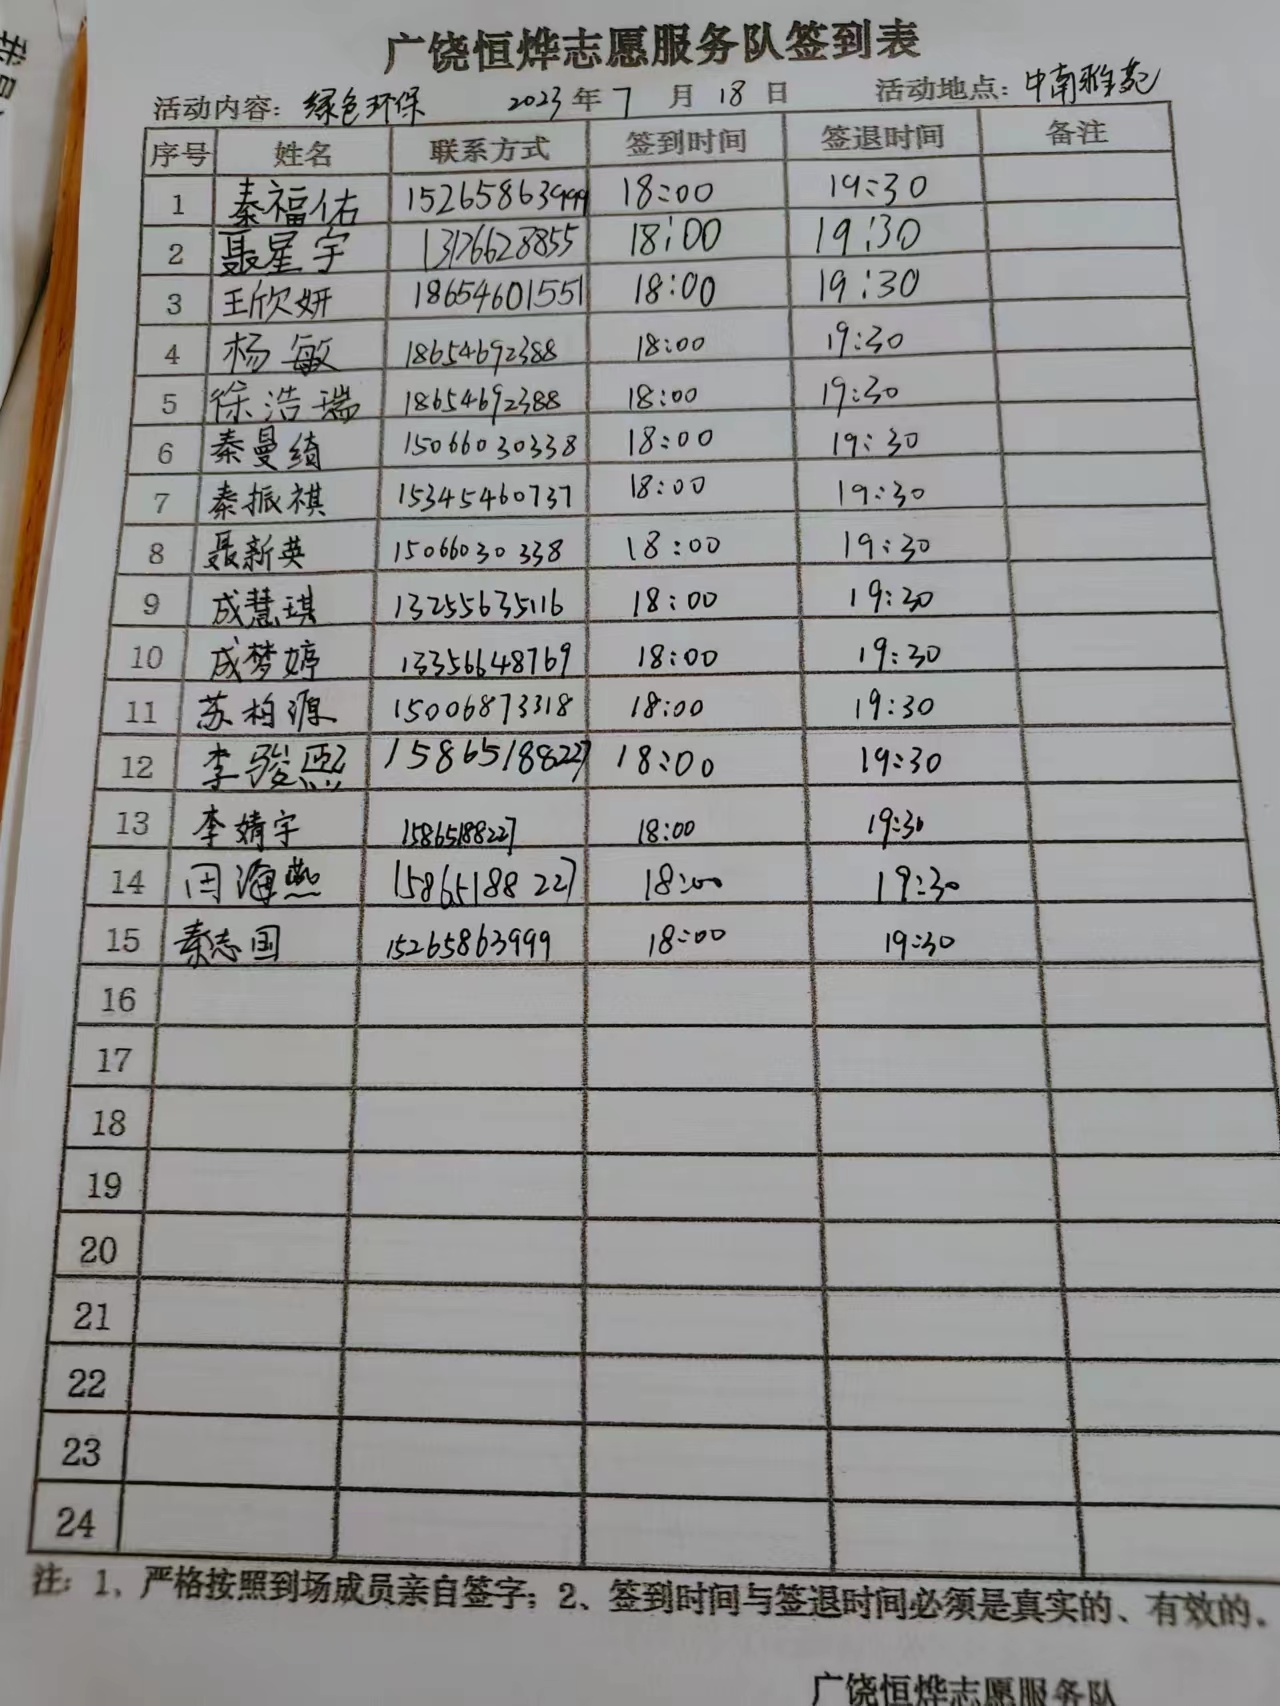 广饶恒烨志愿服务队签到表
活动内容：绿色环保 2023年7月18日 活动地点：中南雅苑
序号 姓名 联系方式 签到时间 签退时间 备注
1 秦福佑 15265863999 18:00 19:30
2 聂星宇 13176628855 18:00 19:30
3 王欣妍 18654601551 18:00 19:30
4 杨敏 18654692388 18:00 19:30
5 徐浩瑞 18654692388 18:00 19:30
6 秦曼绮 15066030338 18:00 19:30
7 秦振祺 15345460737 18:00 19:30
8 聂新英 15066030338 18:00 19:30
9 成慧琪 13255635116 18:00 19:30
10 成梦婷 13356648769 18:00 19:30
11 苏柏源 15006873318 18:00 19:30
12 李骏熙 15865188227 18:00 19:30
13 李婧宇 15865188227 18:00 19:30
14 田海燕 15865188227 18:00 19:30
15 秦志国 15265863999 18:00 19:30
16
17
18
19
20
21
22
23
24
注：1、严格按照到场成员亲自签字；2、签到时间与签退时间必须是真实的、有效的。
广饶恒烨志愿服务队